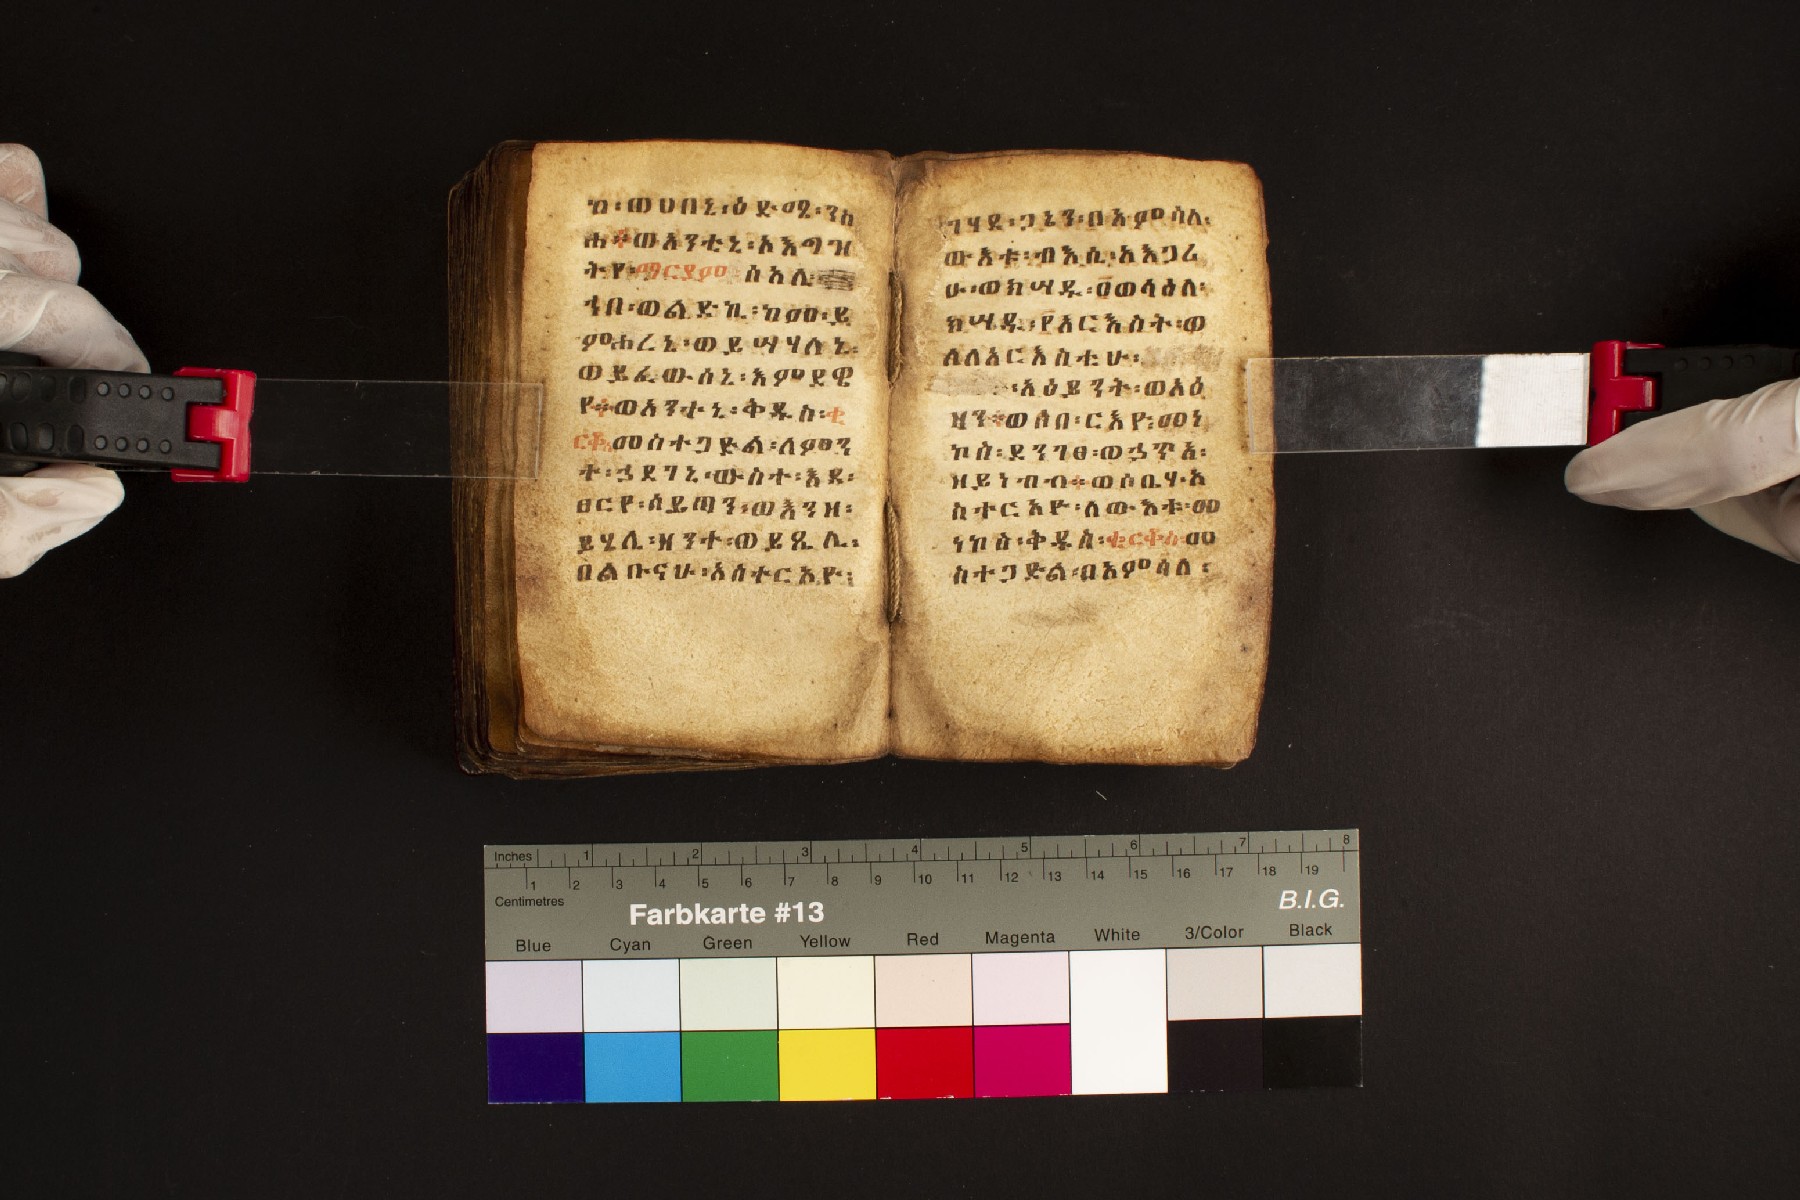 ከ፡ወሀበኒ፡ዕድሜ፡ንስ
ሐ፨ወአንቲኒ፡ኦእግዝ
ትየ፡ማርያም፡ሰአሊ፡
ኀበ፡ወልድኪ፡ከመ፡ይ
ምሐረኒ፡ወይሣሃለኒ፡
ወይፈውሰኒ፡እምደዌ
የ፨ወአንተኒ፡ቅዱስ፡ቂ
ርቆስ፡መስተጋድል፡ለምን
ት፡ኃደገኒ፡ውስተ፡እዴ፡
ፀርየ፡ሰይጣን፡ወእንዘ፡
ይሄሊ፡ዘንተ፡ወይጼሊ፡
በልቡናሁ፡አስተርአዮ፡
ገሃደ፡ጋኔን፡በአምሳለ፡
ውእቱ፡ብእሲ፡አእጋሪ
ሁ፡ወክሣዱ፡፬ወሳዕለ፡
ክሣዱ፡፤አርእስት፡ወ
ለለአርእስቲሁ፡
፡አዕይንት፡ወአዕ
ዛን፨ወሰበ፡ርእየ፡መነ
ኮስ፡ደንገፀ፡ወኃጥአ፡
ዘይነብብ፨ወሶቤሃ፡አ
ስተርአዮ፡ለውእቱ፡መ
ነኮስ፡ቅዱስ፡ቂርቆስ፡መ
ስተጋድል፡በአምሳለ፡
Inches 1 2 3 4 5 6 7 8
1 2 3 4 5 6 7 8 9 10 11 12 13 14 15 16 17 18 19
Centimetres
Farbkarte #13 B.I.G.
Blue Cyan Green Yellow Red Magenta White 3/Color Black